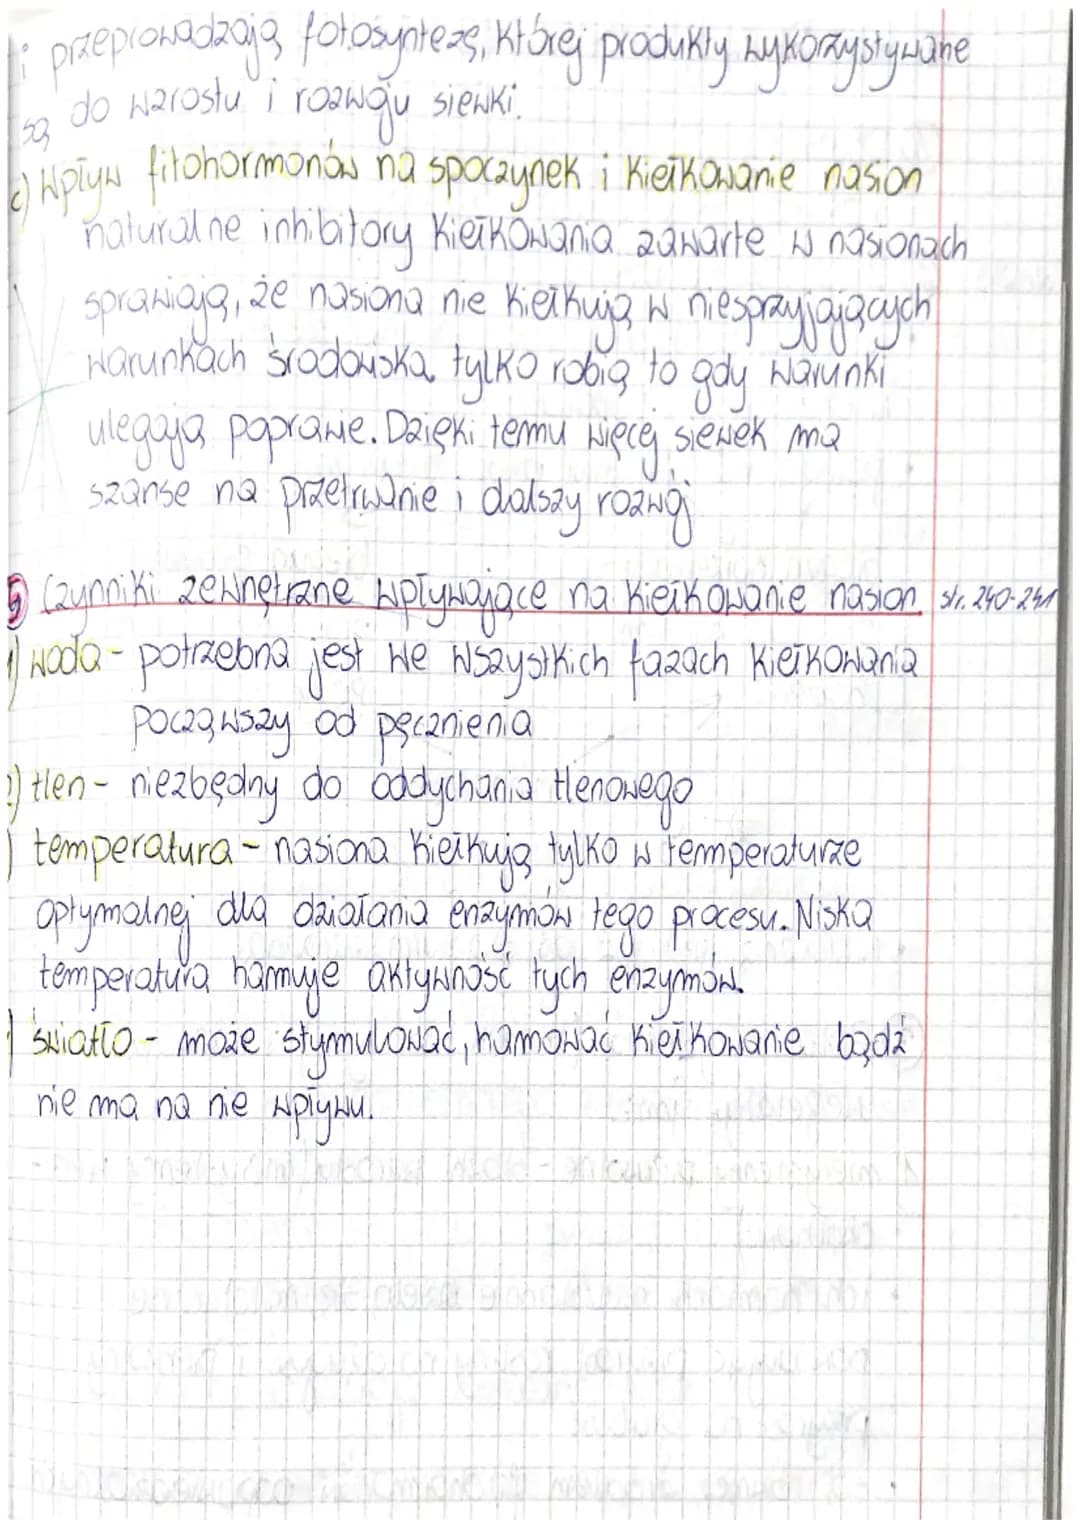 i przeprowadzają fotosyntezę, której produkty wykorzystywane
są do wzrostu i rozwoju siewki.
c) Wpływ fitohormonów na spoczynek i kiełkowanie nasion
naturalne inhibitory kiełkowania zawarte w nasionach
sprawiają, że nasiona nie kiełkują w niesprzyjających
warunkach środowiska, tylko robią to gdy warunki
ulegają poprawie. Dzięki temu więcej siewek ma
szanse na przetrwanie i dalszy rozwój
5) Czynniki zewnętrzne wpływające na kiełkowanie nasion str. 240-241
1) woda - potrzebna jest we wszystkich fazach kiełkowania
począwszy od pęcznienia
2) tlen - niezbędny do oddychania tlenowego
) temperatura - nasiona kiełkują tylko w temperaturze
optymalnej dla działania enzymów tego procesu. Niska
temperatura hamuje aktywność tych enzymów.
) światło - może stymulować, hamować kiełkowanie bądź
nie ma na nie wpływu.